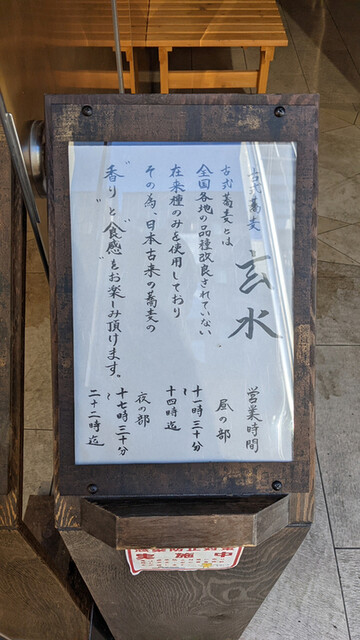 古式蕎麦 玄水
古式蕎麦とは
全国各地の品種改良されていない
在来種のみを使用しており
その為、日本古来の蕎麦の
"香り"と"食感"をお楽しみ頂けます。
営業時間
昼の部
十一時三十分
〜
十四時迄
夜の部
十七時三十分
〜
二十二時迄
実施中